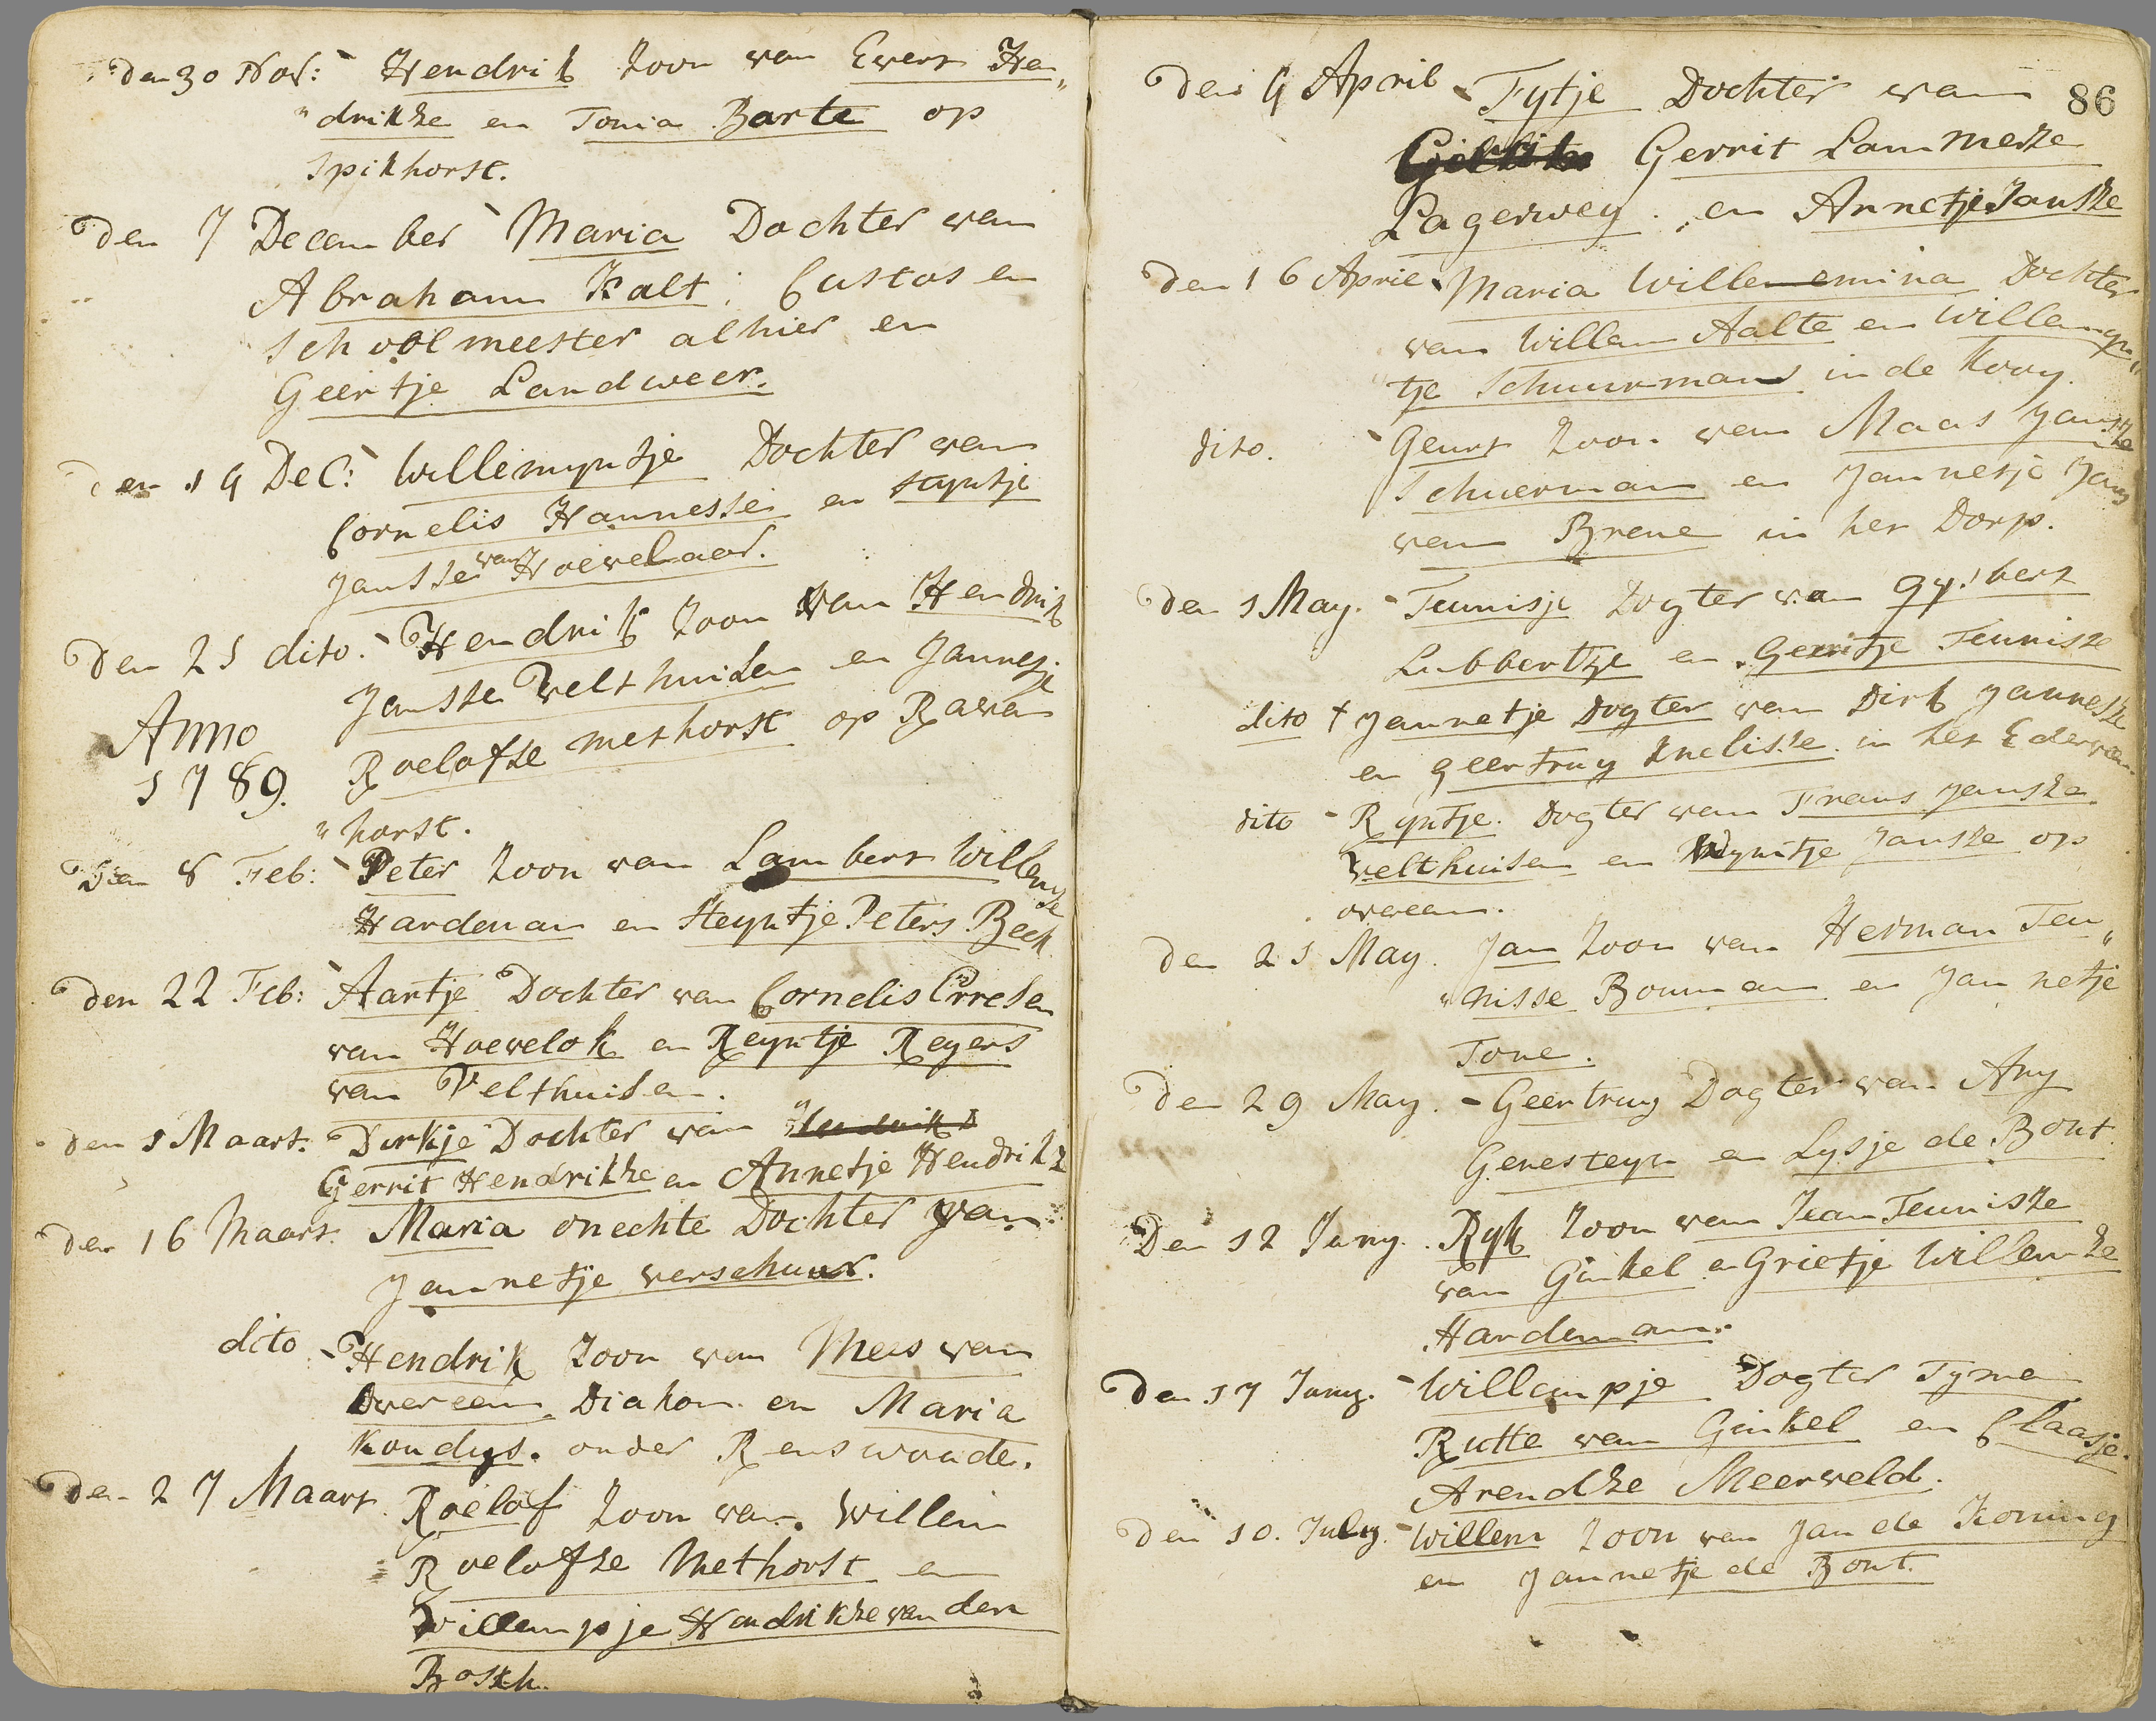 den 30 Nov: Hendrik Zoon van Evert Hen„
„drikze en Tonia Barte op
Spikhorst.
Den 7 December Maria Dochter van
Abraham Kalt, Custos en
Schoolmeester alhier en
Geertje Landweer.
Den 19 Dec: Willemyntje Dochter van
Cornelis Hannesse en Styntje
Jansse van Hoevelaar.
Den 25 dito. Hendrik Zoon van Hendrik
Jansse Velthuisen en Jannetje
Anno
1789.
Roelofze Methorst op Raven
„horst.
Den 8 Feb: Peter Zoon van Lambert Willemze
Hardeman en Steyntje Peters Beek.
Den 22 Feb: Aartje Dochter van Cornelis Erresen
van Hoevelok en Reyntje Reyers
van Velthuisen.
den 1 Maart. Dirkje Dochter van Hendrik
Gerrit Hendrikze en Annetje Hendrikz
Den 16 Maart. Maria onechte Dochter van
Jannetje verschuur.
dito Hendrik Zoon van Mees van
Overeem Diakon en Maria
Koudys. onder Renswoude.
Den 27 Maart Roelof Zoon van Willem
Roelofze Methorst en
Willempje Hendrikze van den
Bosch.
86
Den 9 April Fytje Dochter van
Gerrit Lammerze
Lagerwey. en Annetje Jansze
Den 16 April Maria Willemina Dochter
van Willem Aalte en Willemyn„
tje Schuurman in de Kooy.
dito. Geurt Zoon van Maas Jansze
Schuerman en Jannetje Jans
van Brene in het Dorp.
Den 1 May. Teunisje Dogter van Gysbert
Lubbertze en Gerritje Teunisze
dito † Jannetje Dogter van Dirk Jannesze
en Geertruy Knelisse in het Ederveen
dito - Ryntje Dogter van Frans Jansze
Velthuisen en Wyntje Jansze op
overeem.
Den 21 May. Jan Zoon van Herman Teu„
„nisse Bouman en Jannetje
Tone.
Den 29 May. - Geertruy Dogter van Ary
Genesteyn en Lysje de Bont.
Den 12 Juny. Ryk Zoon van Jean Teunisze
van Ginkel en Grietje Willemze
Hardeman.
Den 17 Juny. Willempje Dogter Tymen
Rutte van Ginkel en Claasje
Arendze Meerveld.
Den 10. July. Willem Zoon van Jan de Koning
en Jannetje de Bont.